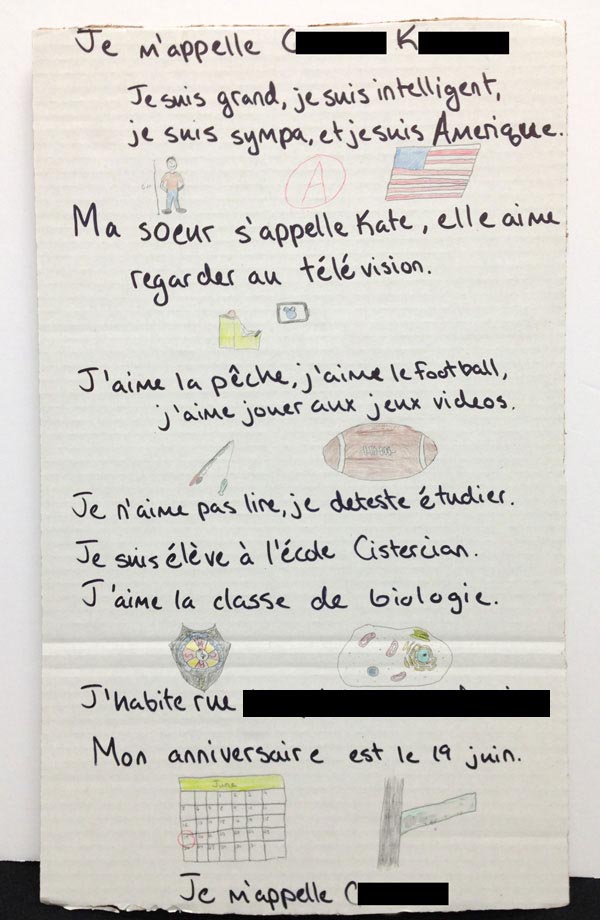 Je m'appelle C K
Je suis grand, je suis intelligent,
je suis sympa, et je suis Amerique.
A
Ma soeur s'appelle Kate, elle aime
regarder au télévision.
J'aime la pêche, j'aime le football,
j'aime jouer aux jeux videos.
Je n'aime pas lire, je deteste étudier.
Je suis élève à l'école Cistercian.
J'aime la classe de biologie.
J'habite rue
Mon anniversaire est le 19 juin.
June
Je m'appelle C